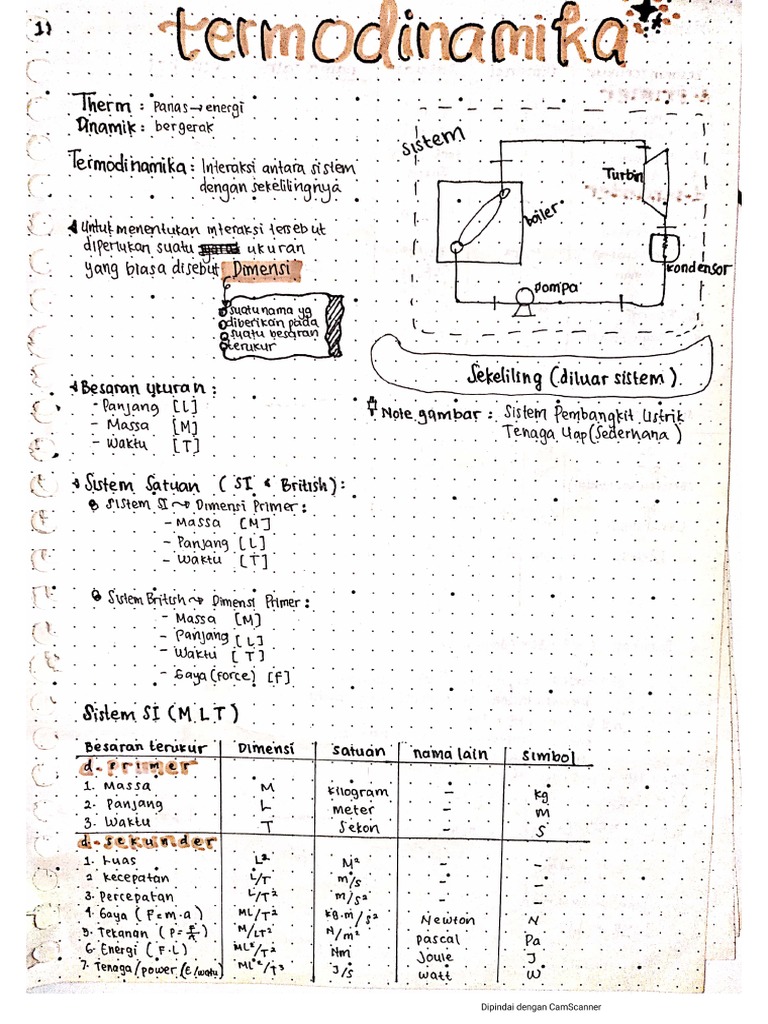 1)
termodinamika
Therm : Panas → energi
Dinamik : bergerak
Termodinamika : Interaksi antara sistem
dengan sekelilingnya
Untuk menentukan interaksi tersebut
diperlukan suatu ukuran
yang biasa disebut Dimensi
suatu nama yg
diberikan pada
suatu besaran
terukur
sistem
Turbin
boiler
kondensor
pompa
Sekeliling (diluar sistem)
Note gambar : Sistem Pembangkit Listrik
Tenaga Uap (Sederhana)
Besaran ukuran :
- Panjang [L]
- Massa [M]
- Waktu [T]
Sistem Satuan ( SI & British) :
Sistem SI → Dimensi Primer :
- Massa [M]
- Panjang [L]
- Waktu [T]
Sistem British → Dimensi Primer :
- Massa [M]
- Panjang [L]
- Waktu [T]
- Gaya (force) [F]
Sistem SI (M L T)
Besaran terukur Dimensi satuan nama lain simbol
d. primer
1. Massa M kilogram - kg
2. Panjang L meter - m
3. Waktu T Sekon - S
d. sekunder
1. Luas L² M² - -
2 Kecepatan L/T m/s - -
3. Percepatan L/T² m/s² - -
4. Gaya ( F = m . a ) ML/T² kg.m/s² Newton N
5. Tekanan ( P = F/A ) M/LT² N/m² pascal Pa
6. Energi ( F . L ) ML²/T² Nm Joule J
7. Tenaga/power (E/waktu) ML²/T³ J/s watt W
Dipindai dengan CamScanner